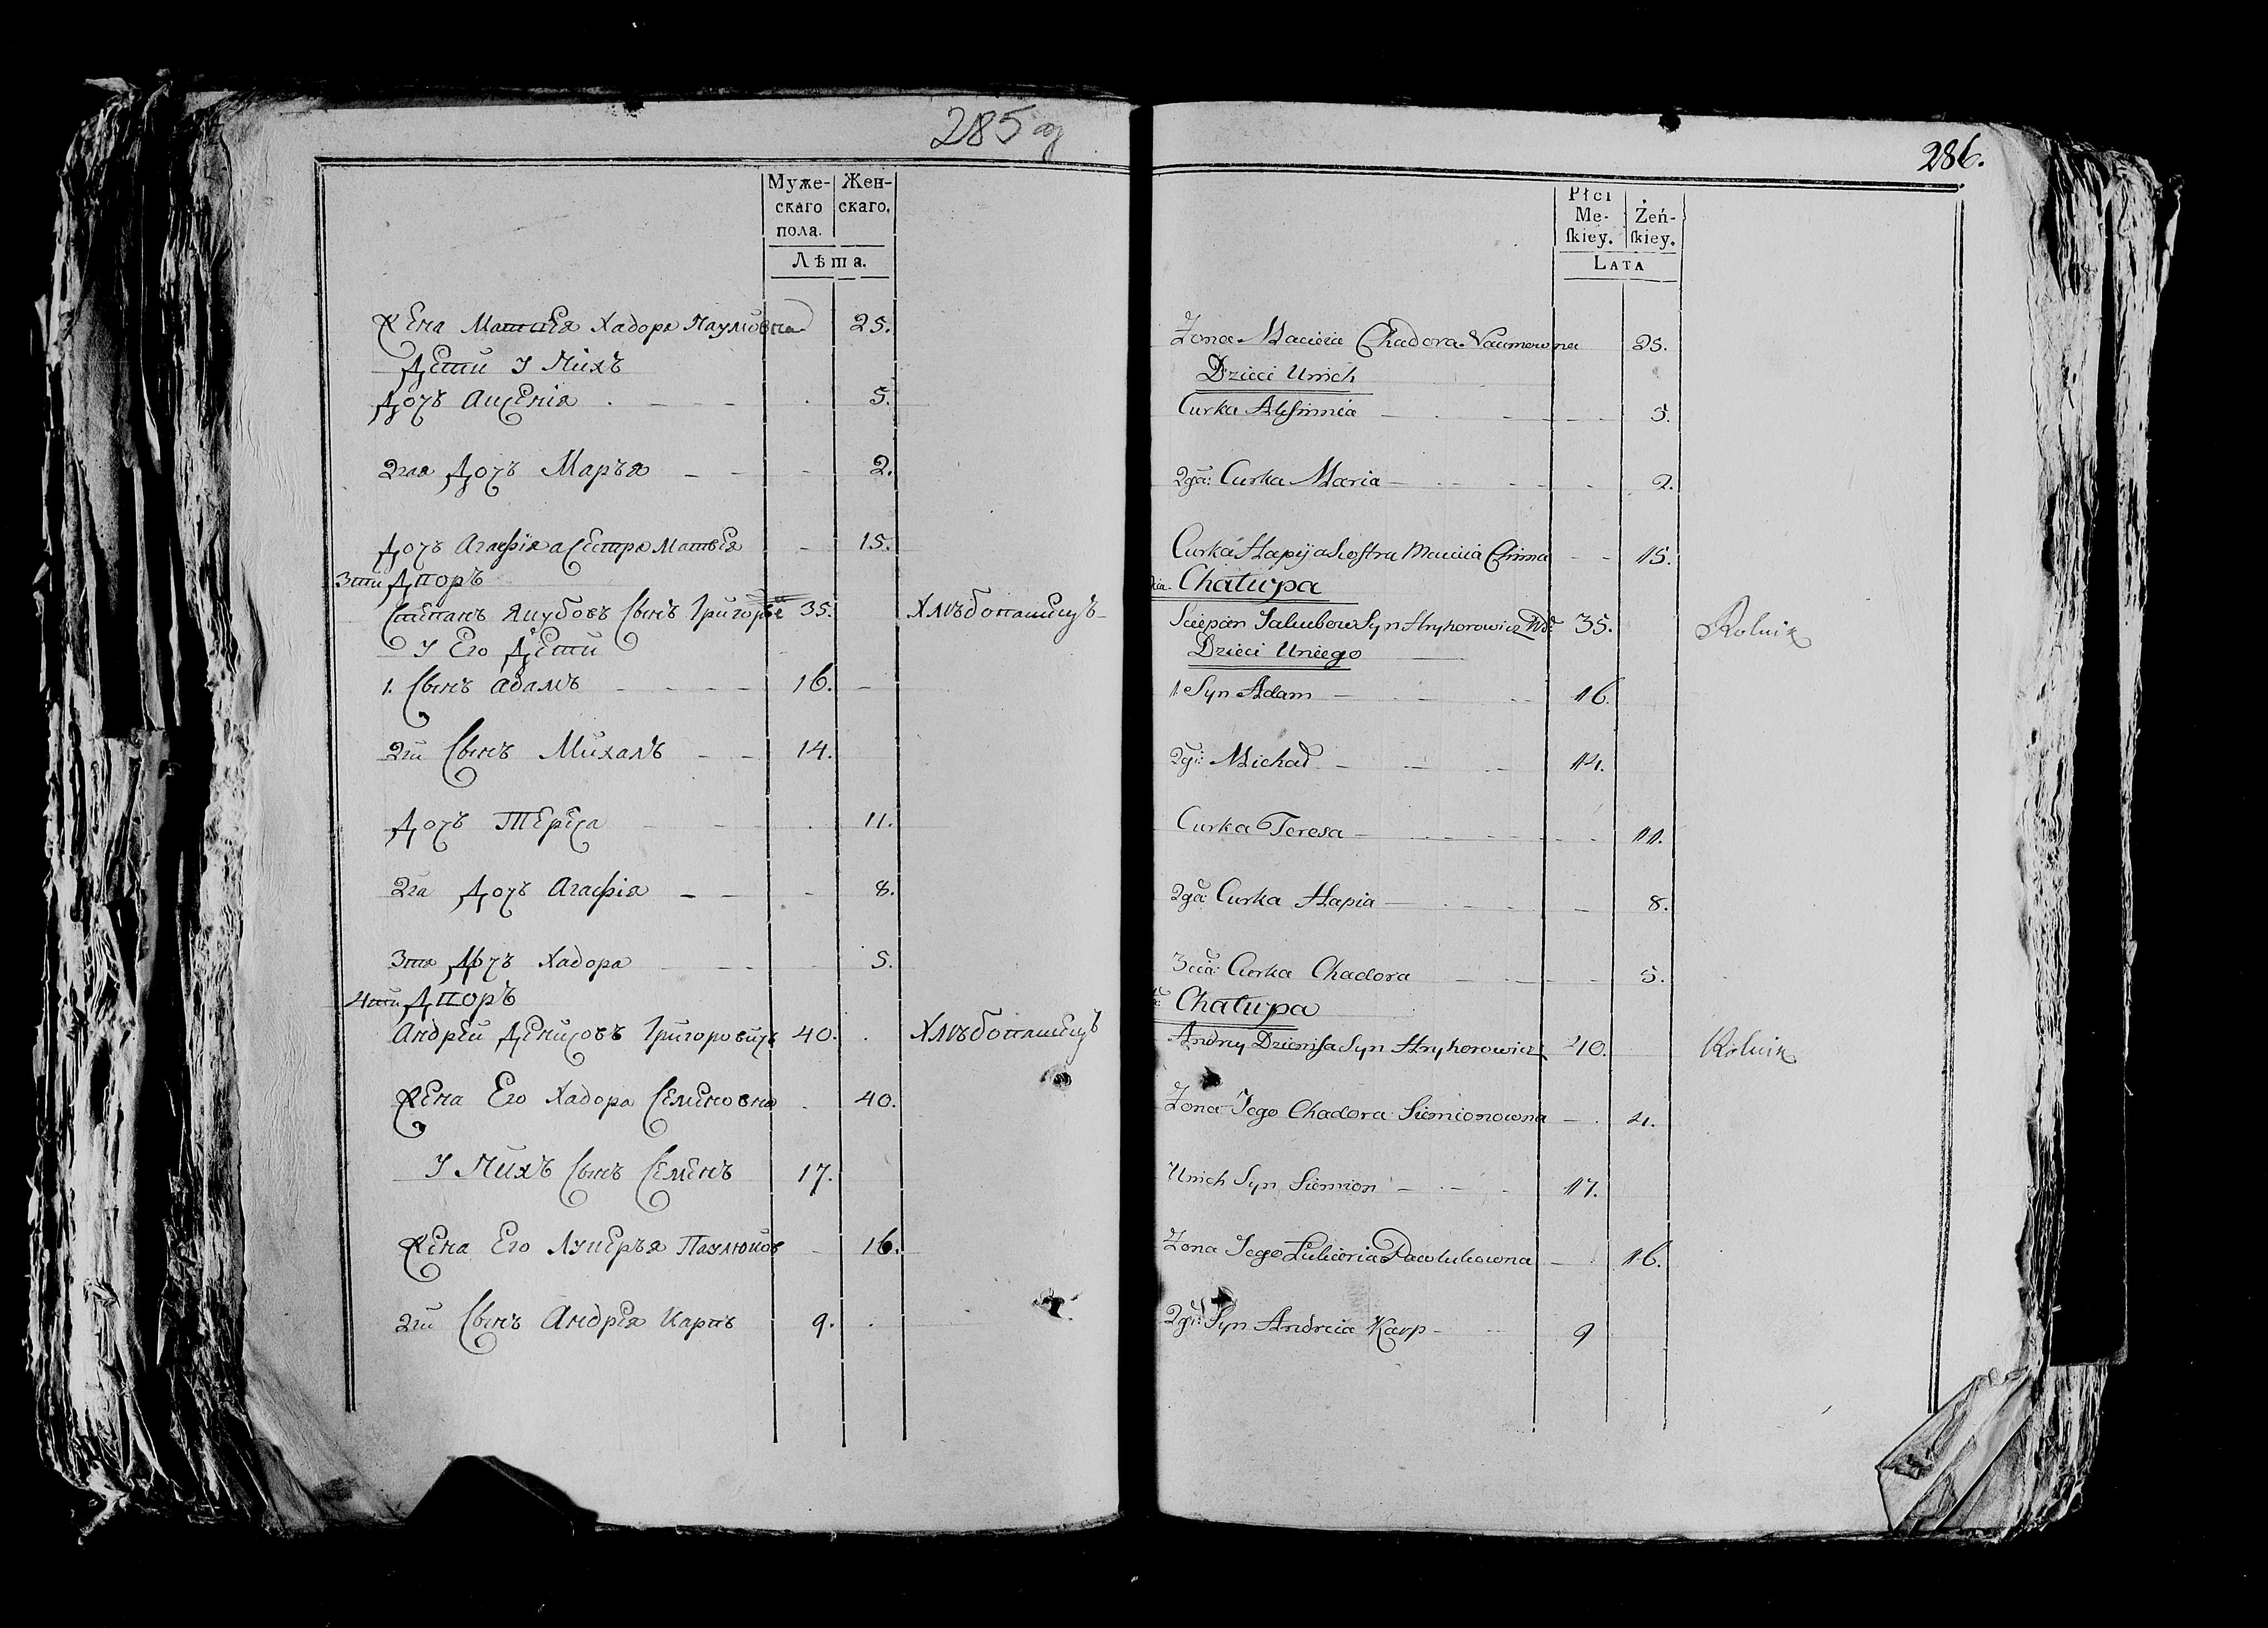 285 об
Муже- Жен-
скаго скаго.
пола.
Лѣта.
Жена Матвея Хадора Наумовна 25.
Дети у Нихъ
Дочъ Аксенія 5.
2гая Дочъ Маръя 2.
Дочъ Агафія а Сестра Матвея 15.
3тй Дворъ
Степанъ Якубовъ Сынъ Григорве 35. Хлѣбопашецъ
у Его Дети
1. Сынъ Адамъ 16.
2гй Сынъ Михалъ 14.
Дочъ Тереса 11.
2га Дочъ Агафія 8.
3тя Дочъ Хадора 5.
4тй Дворъ
Андрей Денисовъ Григоровичъ 40. Хлѣбопашецъ
Жена Его Хадора Семеновна 40.
У Нихъ Сынъ Семенъ 17.
Жена Его Лукеръя Паулюков 16.
2гй Сынъ Андрея Карпъ 9.
286.
Płci
Mę- Żeń-
ſkiey. ſkiey.
LATA
Żona Macieia Chadora Naumowna 25.
Dzieci Unich
Curka Axinnia 5.
2ga: Curka Maria 2.
Curka Hapija Siostra Macieia 15.
Chałupa
Sciepan Jakubow Syn Hryhorowicz Wd: 35. Rolnik
Dzieci Uniego
1 Syn Adam 16
2gi: Michał 14.
Curka Teresa 11.
2ga: Curka Hapia 8.
3cia: Curka Chadora 5.
Chałupa
Andrey Dzienisa Syn Hryhorowicz 40. Rolnik
Żona Jego Chadora Siemionowna 4.
Unich Syn Siemion 17.
Żona Jego Łukieria Pawlukowna 16.
2gi: Syn Andreia Karp 9